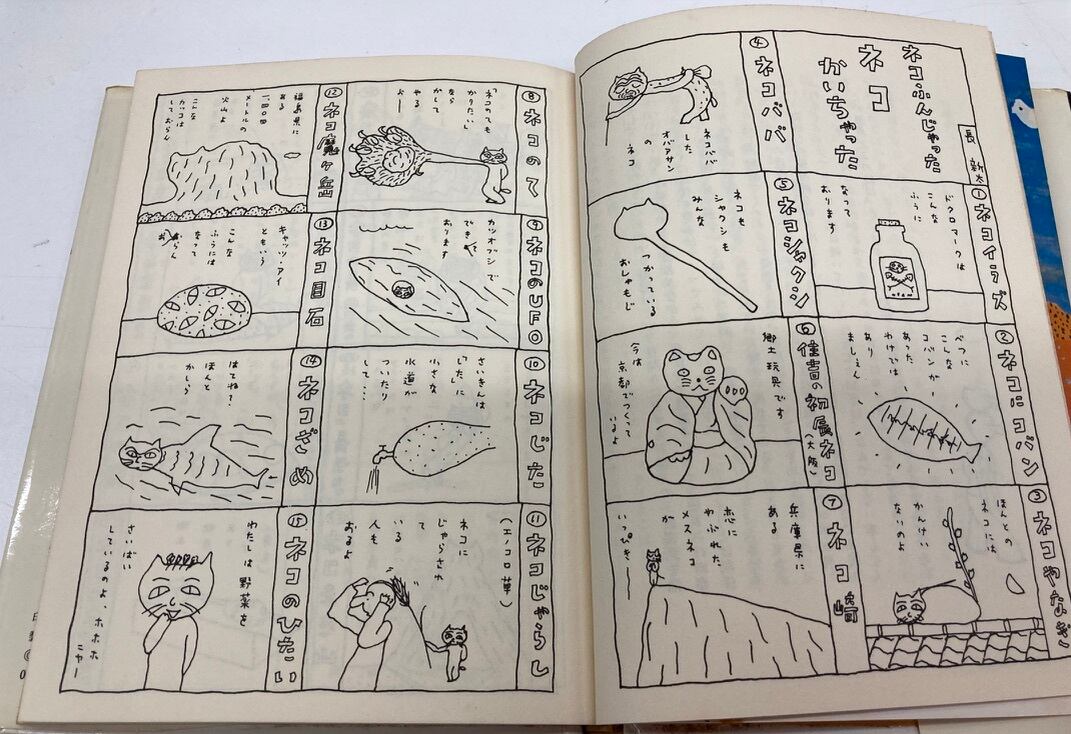 ネコふんじゃった
ネコ
かいちゃった
長 新太
①ネコイラズ
ドクロマークは
こんな
ふうに
なって
おります
②ネコにコバン
べつに
こんな
コバンが
あった
わけでは
あり
ましえん
③ネコやなぎ
ほんとの
ネコには
かんけい
ないのよ
④ネコババ
ネコババ
した
オバアサン
の
ネコ
⑤ネコシャクシ
ネコも
シャクシも
みんな
つかっている
おしゃもじ
⑥住吉の初辰ネコ
(大阪)
郷土玩具です
今は
京都でつくって
いるよ
⑦ネコ崎
兵庫県に
ある
恋に
やぶれた
メスネコ
が
いっぴき――
⑧ネコのて
「ネコのても
かりたい」
なら
かして
やる
よー
⑨ネコのUFO
カツオブシで
できて
おります
⑩ネコじた
さいきんは
「した」に
小さな
水道が
ついたり
して・・・
⑪ネコじゃらし
(エノコロ草)
ネコに
じゃらされ
て
いる
人も
おるよ
⑫ネコ魔ヶ岳
福島県に
ある
一、四〇〇
メートルの
火山よ
こんな
カッコは
しておらん
⑬ネコ目石
キャッツ・アイ
ともいう
こんな
ふうには
なって
おらん
⑭ネコざめ
はてね?
ほんと
かしら
⑮ネコのひたい
わたしは 野菜を
さいばい
しているのよ、ホホホ
ニャー